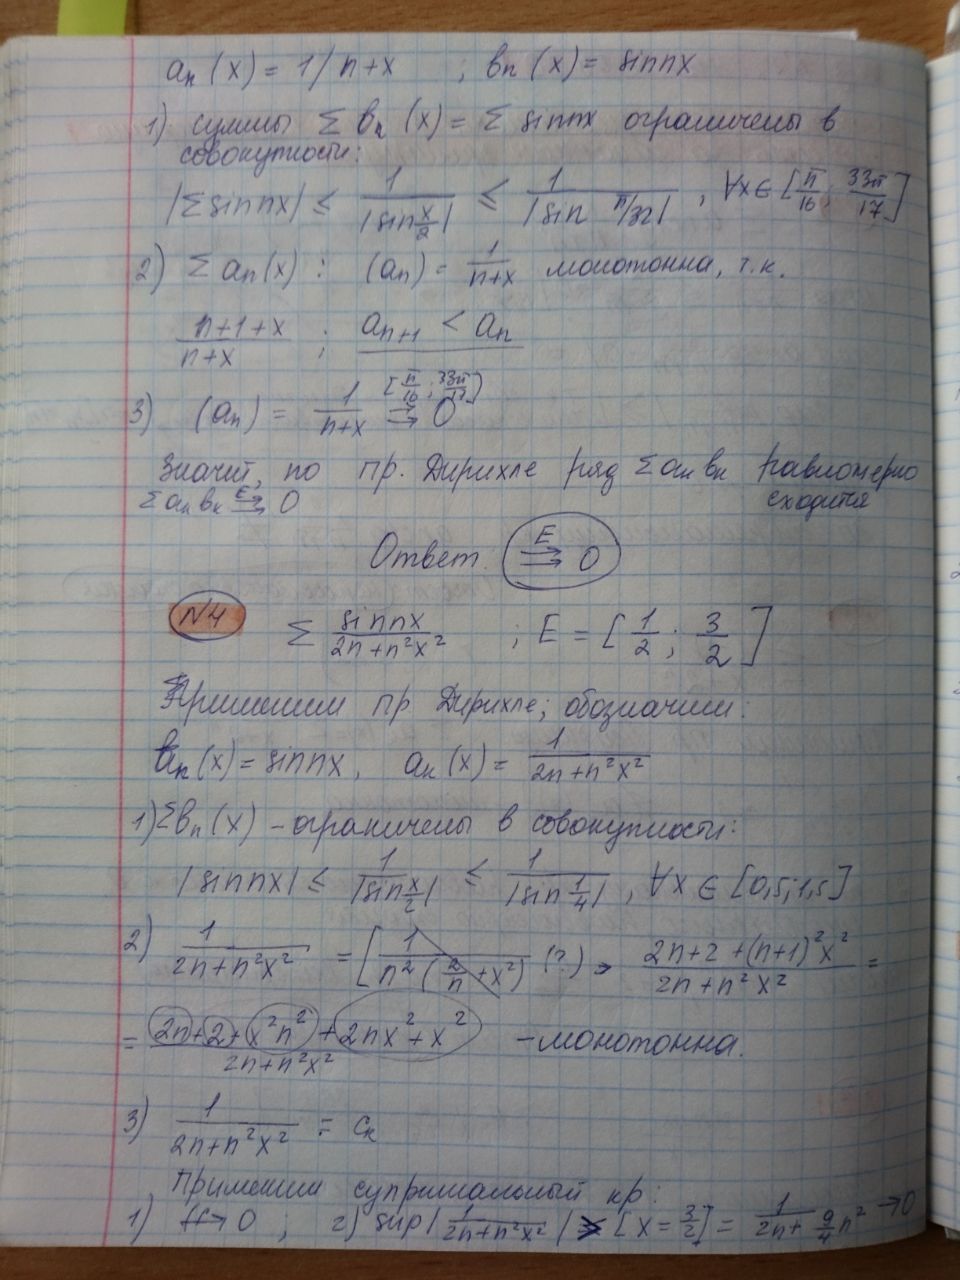 aₙ(x) = 1/n+x ; вₙ(x) = sin nx
1) суммы Σ вₙ(x) = Σ sin nx ограничены в
совокупности:
|Σ sin nx| ≤ 1/|sin x/2| ≤ 1/|sin π/32| , ∀x∈[π/16; 33π/17]
2) Σ aₙ(x) : (aₙ) = 1/(n+x) монотонна, т.к.
(n+1+x)/(n+x) ; aₙ₊₁ < aₙ
3) (aₙ) = 1/(n+x) ⇉ 0 [π/16; 33π/17]
Значит, по пр. Дирихле ряд Σaₙвₙ равномерно
сходится
Σaₙвₙ ⇉ᴱ 0
Ответ. ⇉ᴱ 0
N4 Σ sin nx/(2n+n²x²) ; E = [1/2; 3/2]
Применим пр Дирихле; обозначим:
вₙ(x) = sin nx, aₙ(x) = 1/(2n+n²x²)
1) Σвₙ(x) – ограничены в совокупности:
|sin nx| ≤ 1/|sin x/2| ≤ 1/|sin 1/4| , ∀x ∈ [0,5;1,5]
2) 1/(2n+n²x²) = [1/(n²(2/n+x²)) (?) → (2n+2+(n+1)²x²)/(2n+n²x²) =
= (2n+2+x²n²+2nx²+x²)/(2n+n²x²) – монотонна.
3) 1/(2n+n²x²) = cₙ
применим супримальный кр:
1) f→0 ; 2) sup|1/(2n+n²x²)| [x = 3/2] = 1/(2n+9/4 n²) →0